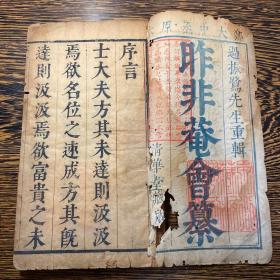 鄭大中丞原
過振鷺先生重輯
昨非菴會纂
清華堂藏板
序言
士大夫方其未達則汲汲
焉欲名位之速成方其既
達則汲汲焉欲富貴之未